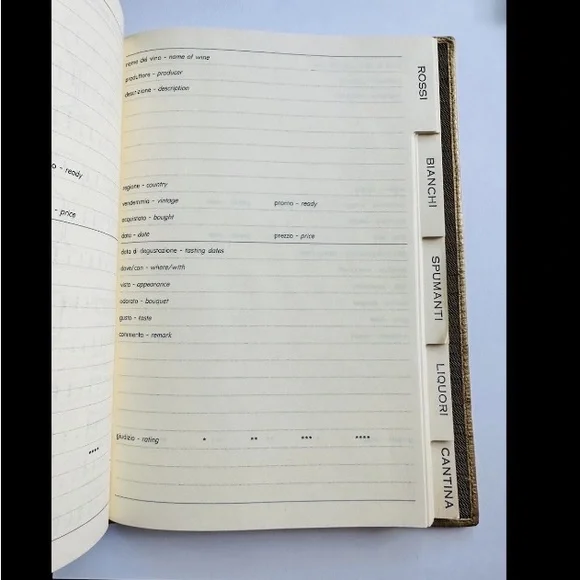 ready
- price
****
nome del vino - name of wine
produttore - producer
descrizione - description
regione - country
vendemmia - vintage pronto - ready
acquistato - bought
data - date prezzo - price
data di degustazione - tasting dates
dove/con - where/with
visto - appearance
odorato - bouquet
gusto - taste
commento - remark
giudizio - rating * ** *** ****
ROSSI
BIANCHI
SPUMANTI
LIQUORI
CANTINA